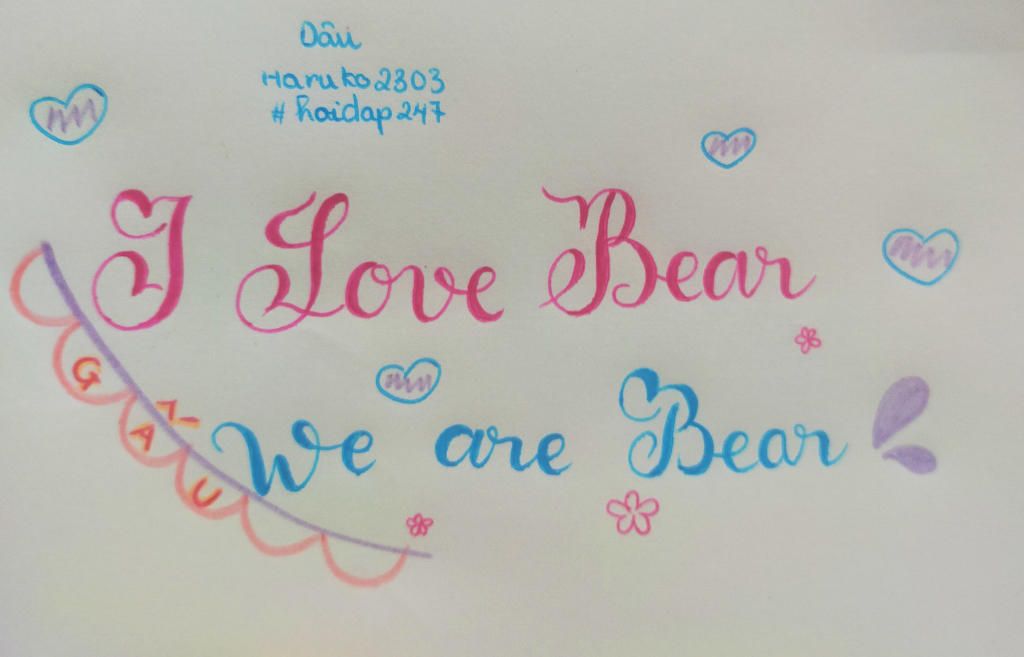 Dâu
Haruko2303
#hoidap247
I Love Bear
We are Bear
GẤU